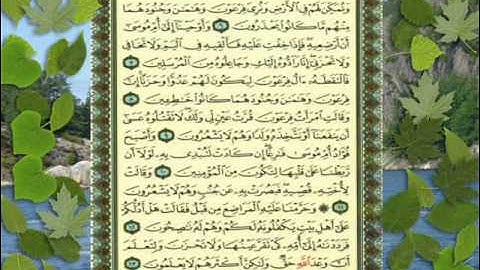 وَنُمَكِّنَ لَهُمْ فِي ٱلْأَرْضِ وَنُرِيَ فِرْعَوْنَ وَهَٰمَٰنَ وَجُنُودَهُمَا
مِنْهُم مَّا كَانُوا۟ يَحْذَرُونَ ٦ وَأَوْحَيْنَآ إِلَىٰٓ أُمِّ مُوسَىٰٓ
أَنْ أَرْضِعِيهِ فَإِذَا خِفْتِ عَلَيْهِ فَأَلْقِيهِ فِي ٱلْيَمِّ وَلَا تَخَافِي
وَلَا تَحْزَنِيٓ إِنَّا رَآدُّوهُ إِلَيْكِ وَجَاعِلُوهُ مِنَ ٱلْمُرْسَلِينَ ٧
فَٱلْتَقَطَهُۥٓ ءَالُ فِرْعَوْنَ لِيَكُونَ لَهُمْ عَدُوًّا وَحَزَنًا إِنَّ
فِرْعَوْنَ وَهَٰمَٰنَ وَجُنُودَهُمَا كَانُوا۟ خَٰطِـِٔينَ ٨
وَقَالَتِ ٱمْرَأَتُ فِرْعَوْنَ قُرَّتُ عَيْنٍ لِّي وَلَكَ لَا تَقْتُلُوهُ عَسَىٰٓ
أَن يَنفَعَنَآ أَوْ نَتَّخِذَهُۥ وَلَدًا وَهُمْ لَا يَشْعُرُونَ ٩ وَأَصْبَحَ
فُؤَادُ أُمِّ مُوسَىٰ فَٰرِغًا إِن كَادَتْ لَتُبْدِي بِهِۦ لَوْلَآ أَن
رَّبَطْنَا عَلَىٰ قَلْبِهَا لِتَكُونَ مِنَ ٱلْمُؤْمِنِينَ ١٠ وَقَالَتْ
لِأُخْتِهِۦ قُصِّيهِ فَبَصُرَتْ بِهِۦ عَن جُنُبٍ وَهُمْ لَا يَشْعُرُونَ
١١ وَحَرَّمْنَا عَلَيْهِ ٱلْمَرَاضِعَ مِن قَبْلُ فَقَالَتْ هَلْ أَدُلُّكُمْ
عَلَىٰٓ أَهْلِ بَيْتٍ يَكْفُلُونَهُۥ لَكُمْ وَهُمْ لَهُۥ نَٰصِحُونَ ١٢
فَرَدَدْنَٰهُ إِلَىٰٓ أُمِّهِۦ كَيْ تَقَرَّ عَيْنُهَا وَلَا تَحْزَنَ وَلِتَعْلَمَ
أَنَّ وَعْدَ ٱللَّهِ حَقٌّ وَلَٰكِنَّ أَكْثَرَهُمْ لَا يَعْلَمُونَ ١٣